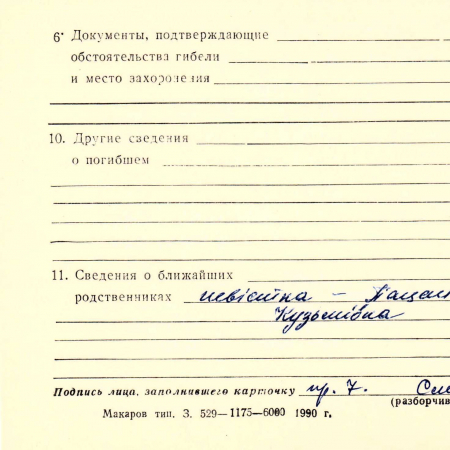 6. Документы, подтверждающие
обстоятельства гибели
и место захоронения
10. Другие сведения
о погибшем
11. Сведения о ближайших
родственниках невістка –
Кузьмівна
Подпись лица, заполнившего карточку пр. 7.
(разборчив
Макаров тип. З. 529—1175—6000 1990 г.